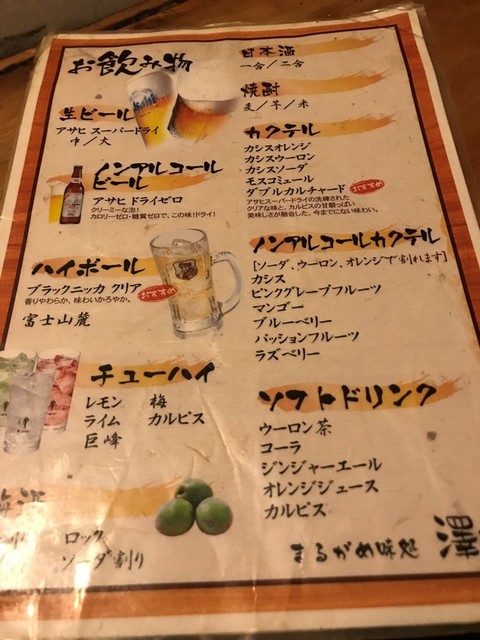 お飲み物
生ビール
アサヒ スーパードライ
中／大
ノンアルコール
ビール
アサヒ ドライゼロ
クリーミーな泡！
カロリーゼロ・糖質ゼロで、この味！ドライ！
ハイボール
ブラックニッカ クリア
おすすめ
香りやわらか、味わいかろやか。
富士山麓
チューハイ
レモン 梅
ライム カルピス
巨峰
ロック
ソーダ割り
日本酒
一合／二合
焼酎
麦／芋／米
カクテル
カシスオレンジ
カシスウーロン
カシスソーダ
モスコミュール
ダブルカルチャード おすすめ
アサヒスーパードライの洗練された
クリアな味と、カルピスの甘酸っぱい
美味しさが融合した、今までにない味わい。
ノンアルコールカクテル
[ソーダ、ウーロン、オレンジで割れます]
カシス
ピンクグレープフルーツ
マンゴー
ブルーベリー
パッションフルーツ
ラズベリー
ソフトドリンク
ウーロン茶
コーラ
ジンジャーエール
オレンジジュース
カルピス
まるがめ味処